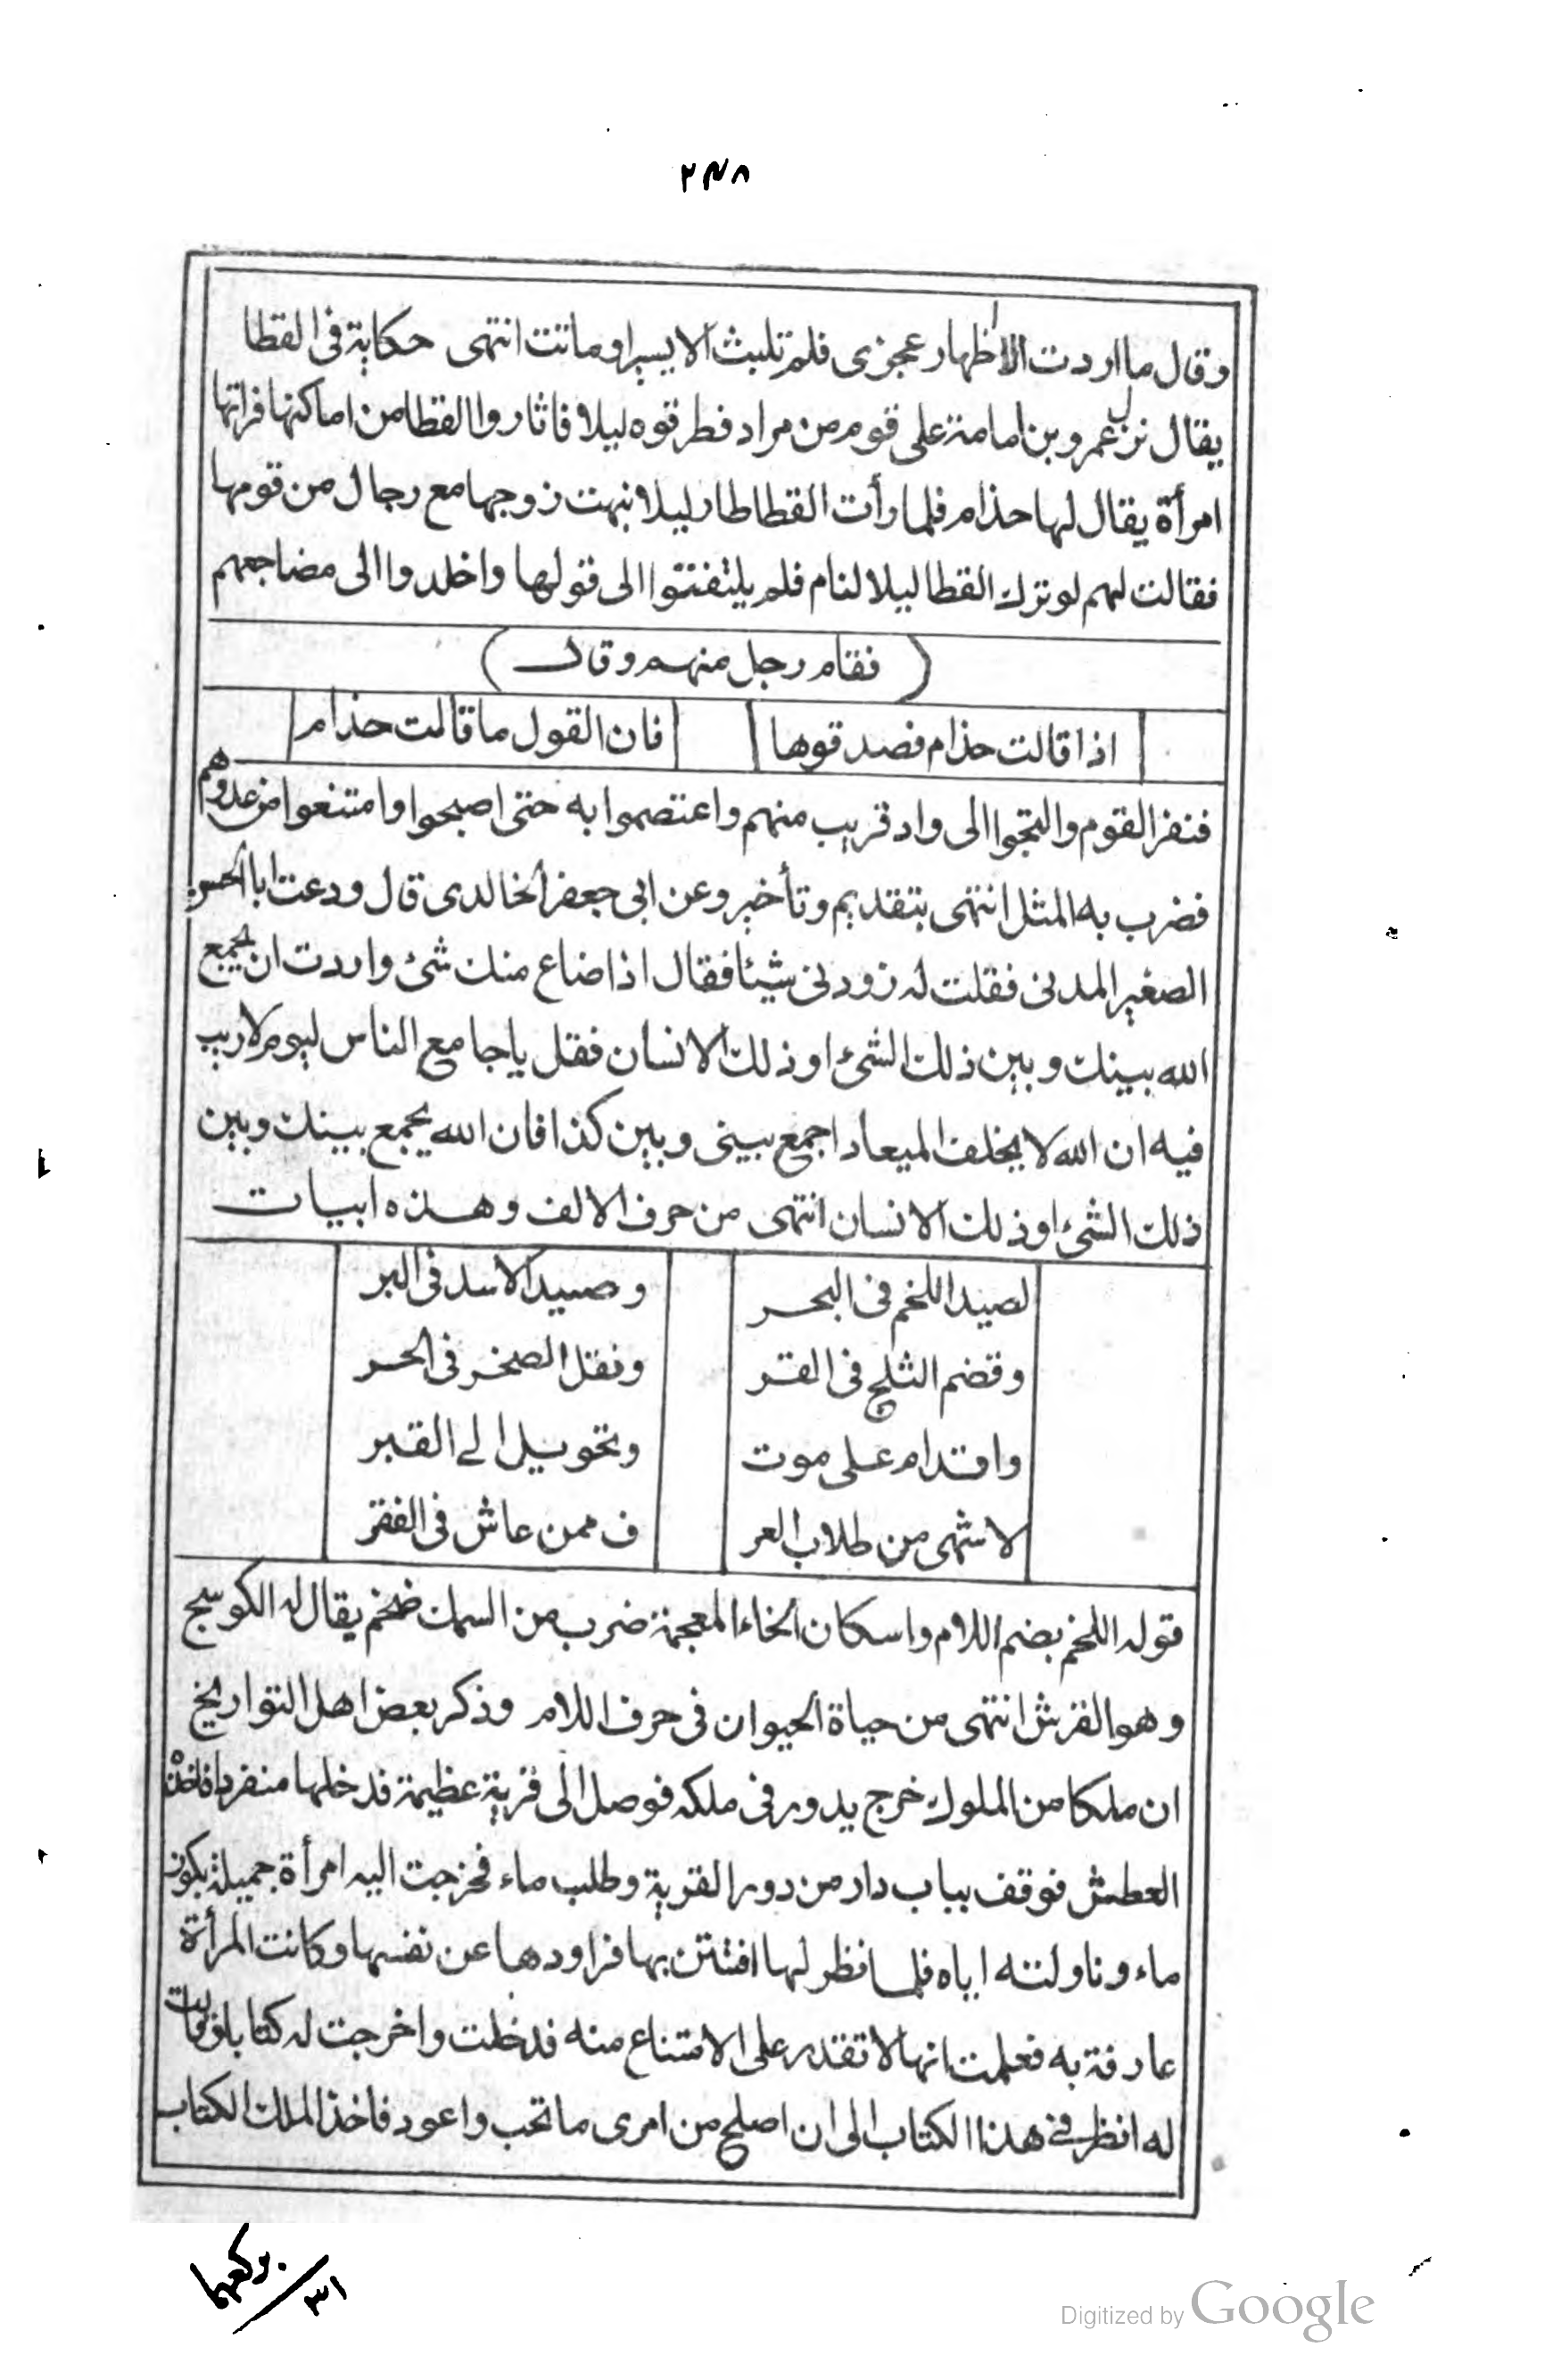 ٢٣٨
وقال ما اردت الا اظهار عجزى فلم تلبث الا يسيرا وماتت انتهى حكاية فى القطا
يقال نزل عمرو بن امامة على قوم من مراد فطرقوه ليلا فاثاروا القطا من اماكنها فراتها
امرأة يقال لها حذام فلما رأت القطا طار ليلا نبهت زوجها مع رجال من قومها
فقالت لهم لو ترك القطا ليلا لنام فلم يلتفتوا الى قولها واخلدوا الى مضاجعهم
( فقام رجل منهم وقال )
اذا قالت حذام فصدقوها فان القول ما قالت حذام
فنفر القوم والتجوا الى واد قريب منهم واعتصموا به حتى اصبحوا وامتنعوا من عدوهم
فضرب به المثل انتهى بتقديم وتأخير وعن ابى جعفر الخالدى قال ودعت ابا الحسن
الصغير المدنى فقلت له زودنى شيئا فقال اذا ضاع منك شئ واردت ان يجمع
الله بينك وبين ذلك الشئ او ذلك الانسان فقل يا جامع الناس ليوم لا ريب
فيه ان الله لا يخلف الميعاد اجمع بينى وبين كذا فان الله يجمع بينك وبين
ذلك الشئ او ذلك الانسان انتهى من حرف الالف وهذه ابيات
لصيد اللخم فى البحر وصيد الاسد فى البر
وقضم الثلج فى القر ونقل الصخر فى الحر
واقدام على موت وتحويل الى القبر
لاشهى من طلاب العر ف ممن عاش فى الفقر
قوله اللخم بضم اللام واسكان الخاء المعجمة ضرب من السمك ضخم يقال له الكوسج
وهو القرش انتهى من حياة الحيوان فى حرف اللام وذكر بعض اهل التواريخ
ان ملكا من الملوك خرج يدور فى ملكه فوصل الى قرية عظيمة فدخلها منفردا فاخذه
العطش فوقف بباب دار من دور القرية وطلب ماء فخرجت اليه امرأة جميلة بكوز
ماء وناولته اياه فلما نظر لها افتتن بها فراودها عن نفسها وكانت المرأة
عارفة به فعلمت انها لا تقدر على الامتناع منه فدخلت واخرجت له كتابا وقالت
له انظر فى هذا الكتاب الى ان اصلح من امرى ما تحب واعود فاخذ الملك الكتاب
٣١
Digitized by Google